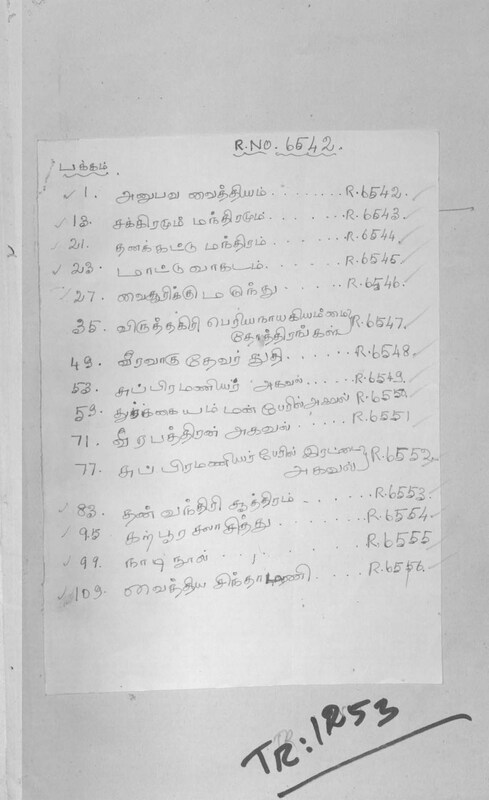 R.NO. 6542.
பக்கம்
1. அனுபவ வைத்தியம் ........ R.6542
13. சக்கிரமும் மந்திரமும் ...... R.6543
21. தனக்கட்டு மந்திரம் ...... R.6544
23. மாட்டு வாகடம் ...... R.6545
27. வைசூரிக்கு மருந்து ...... R.6546
35. விருத்தகிரி பெரியநாயகியம்மை
தோத்திரங்கள் R.6547
49. வீரவாகு தேவர் துதி ...... R.6548
53. சுப்பிரமணியர் அகவல் ..... R.6549
59. துர்க்கையம்மன் பேரில் அகவல் R.6550
71. வீரபத்திரன் அகவல் ..... R.6551
77. சுப்பிரமணியர் பேரில் இரட்டை
அகவல் R.6552
83. தன்வந்திரி சூத்திரம் ..... R.6553
95. கற்பூர சலாசித்து ..... R.6554
99. நாடி நூல் ..... R.6555
109. வைத்திய சிந்தாமணி ..... R.6556
TR:1253